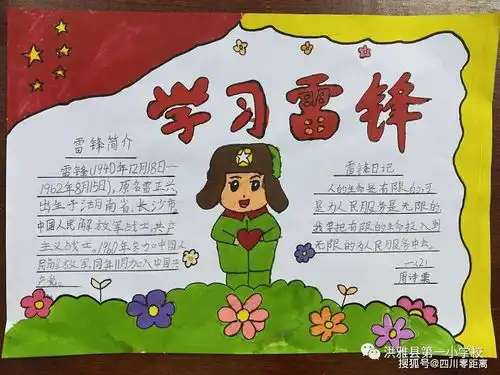 学习雷锋
雷锋简介
雷锋(1940年12月18日—
1962年8月15日),原名雷正兴
出生于湖南省,长沙市,
中国人民解放军战士,共产
主义战士。1960年参加中国人
民解放军,同年11月加入中国共
产党。
雷锋日记
人的生命是有限的,可
是为人民服务是无限的,
我要把有限的生命投入到
无限的为人民服务中去。
一(2)
周诗
洪雅县第一小学校
搜狐号@四川零距离